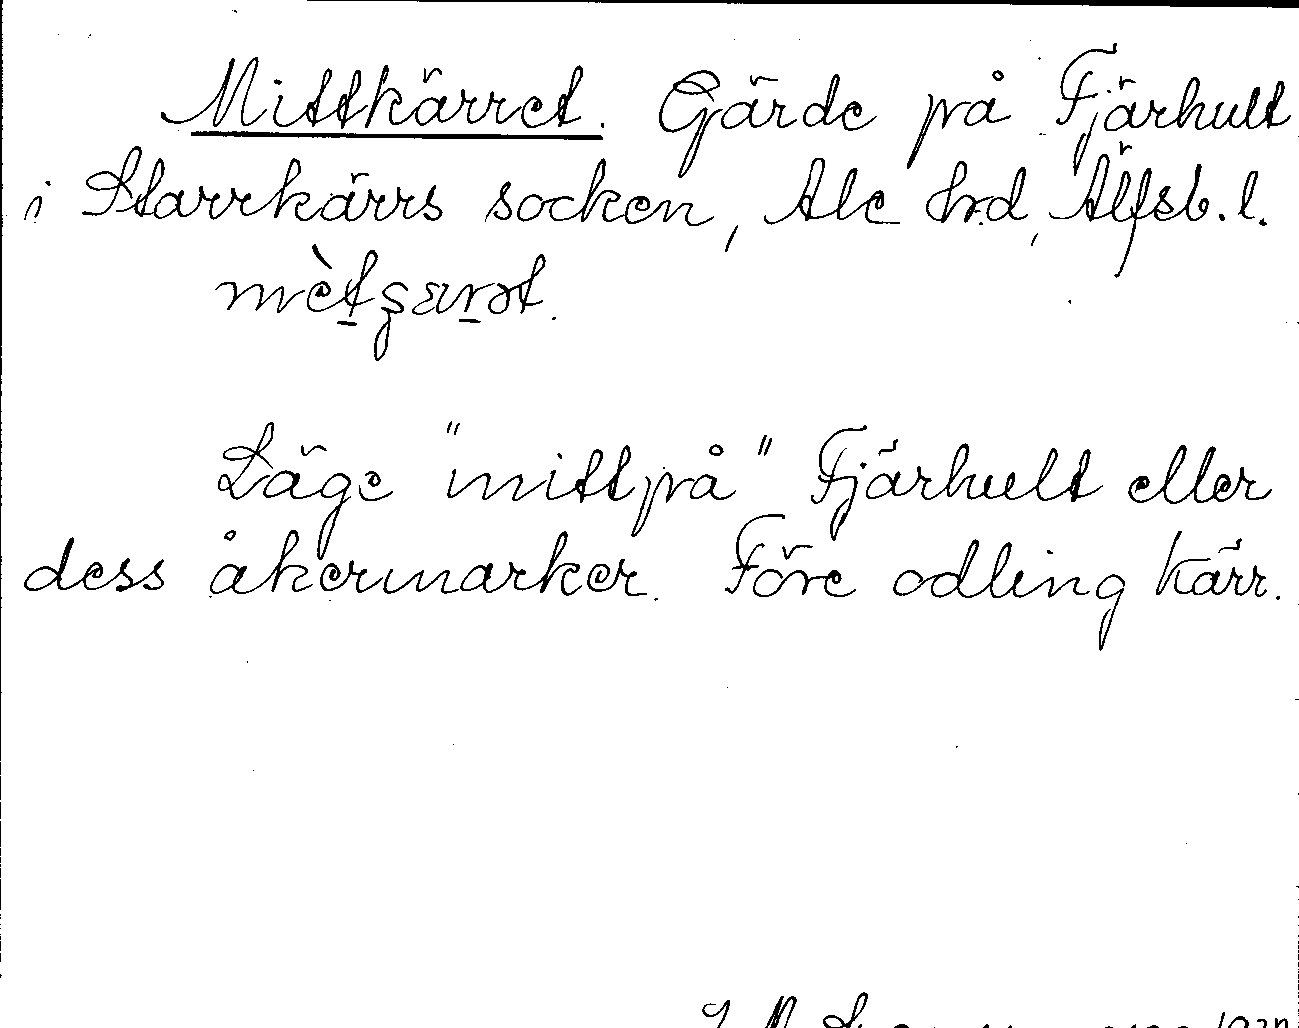 Mittkärret. Gärde på Fjärhult
i Starrkärrs socken, Ale hrd, Älfsb. l.
mètʂærət.
Läge "mitt på" Fjärhult eller
dess åkermarker. Före odling kärr.